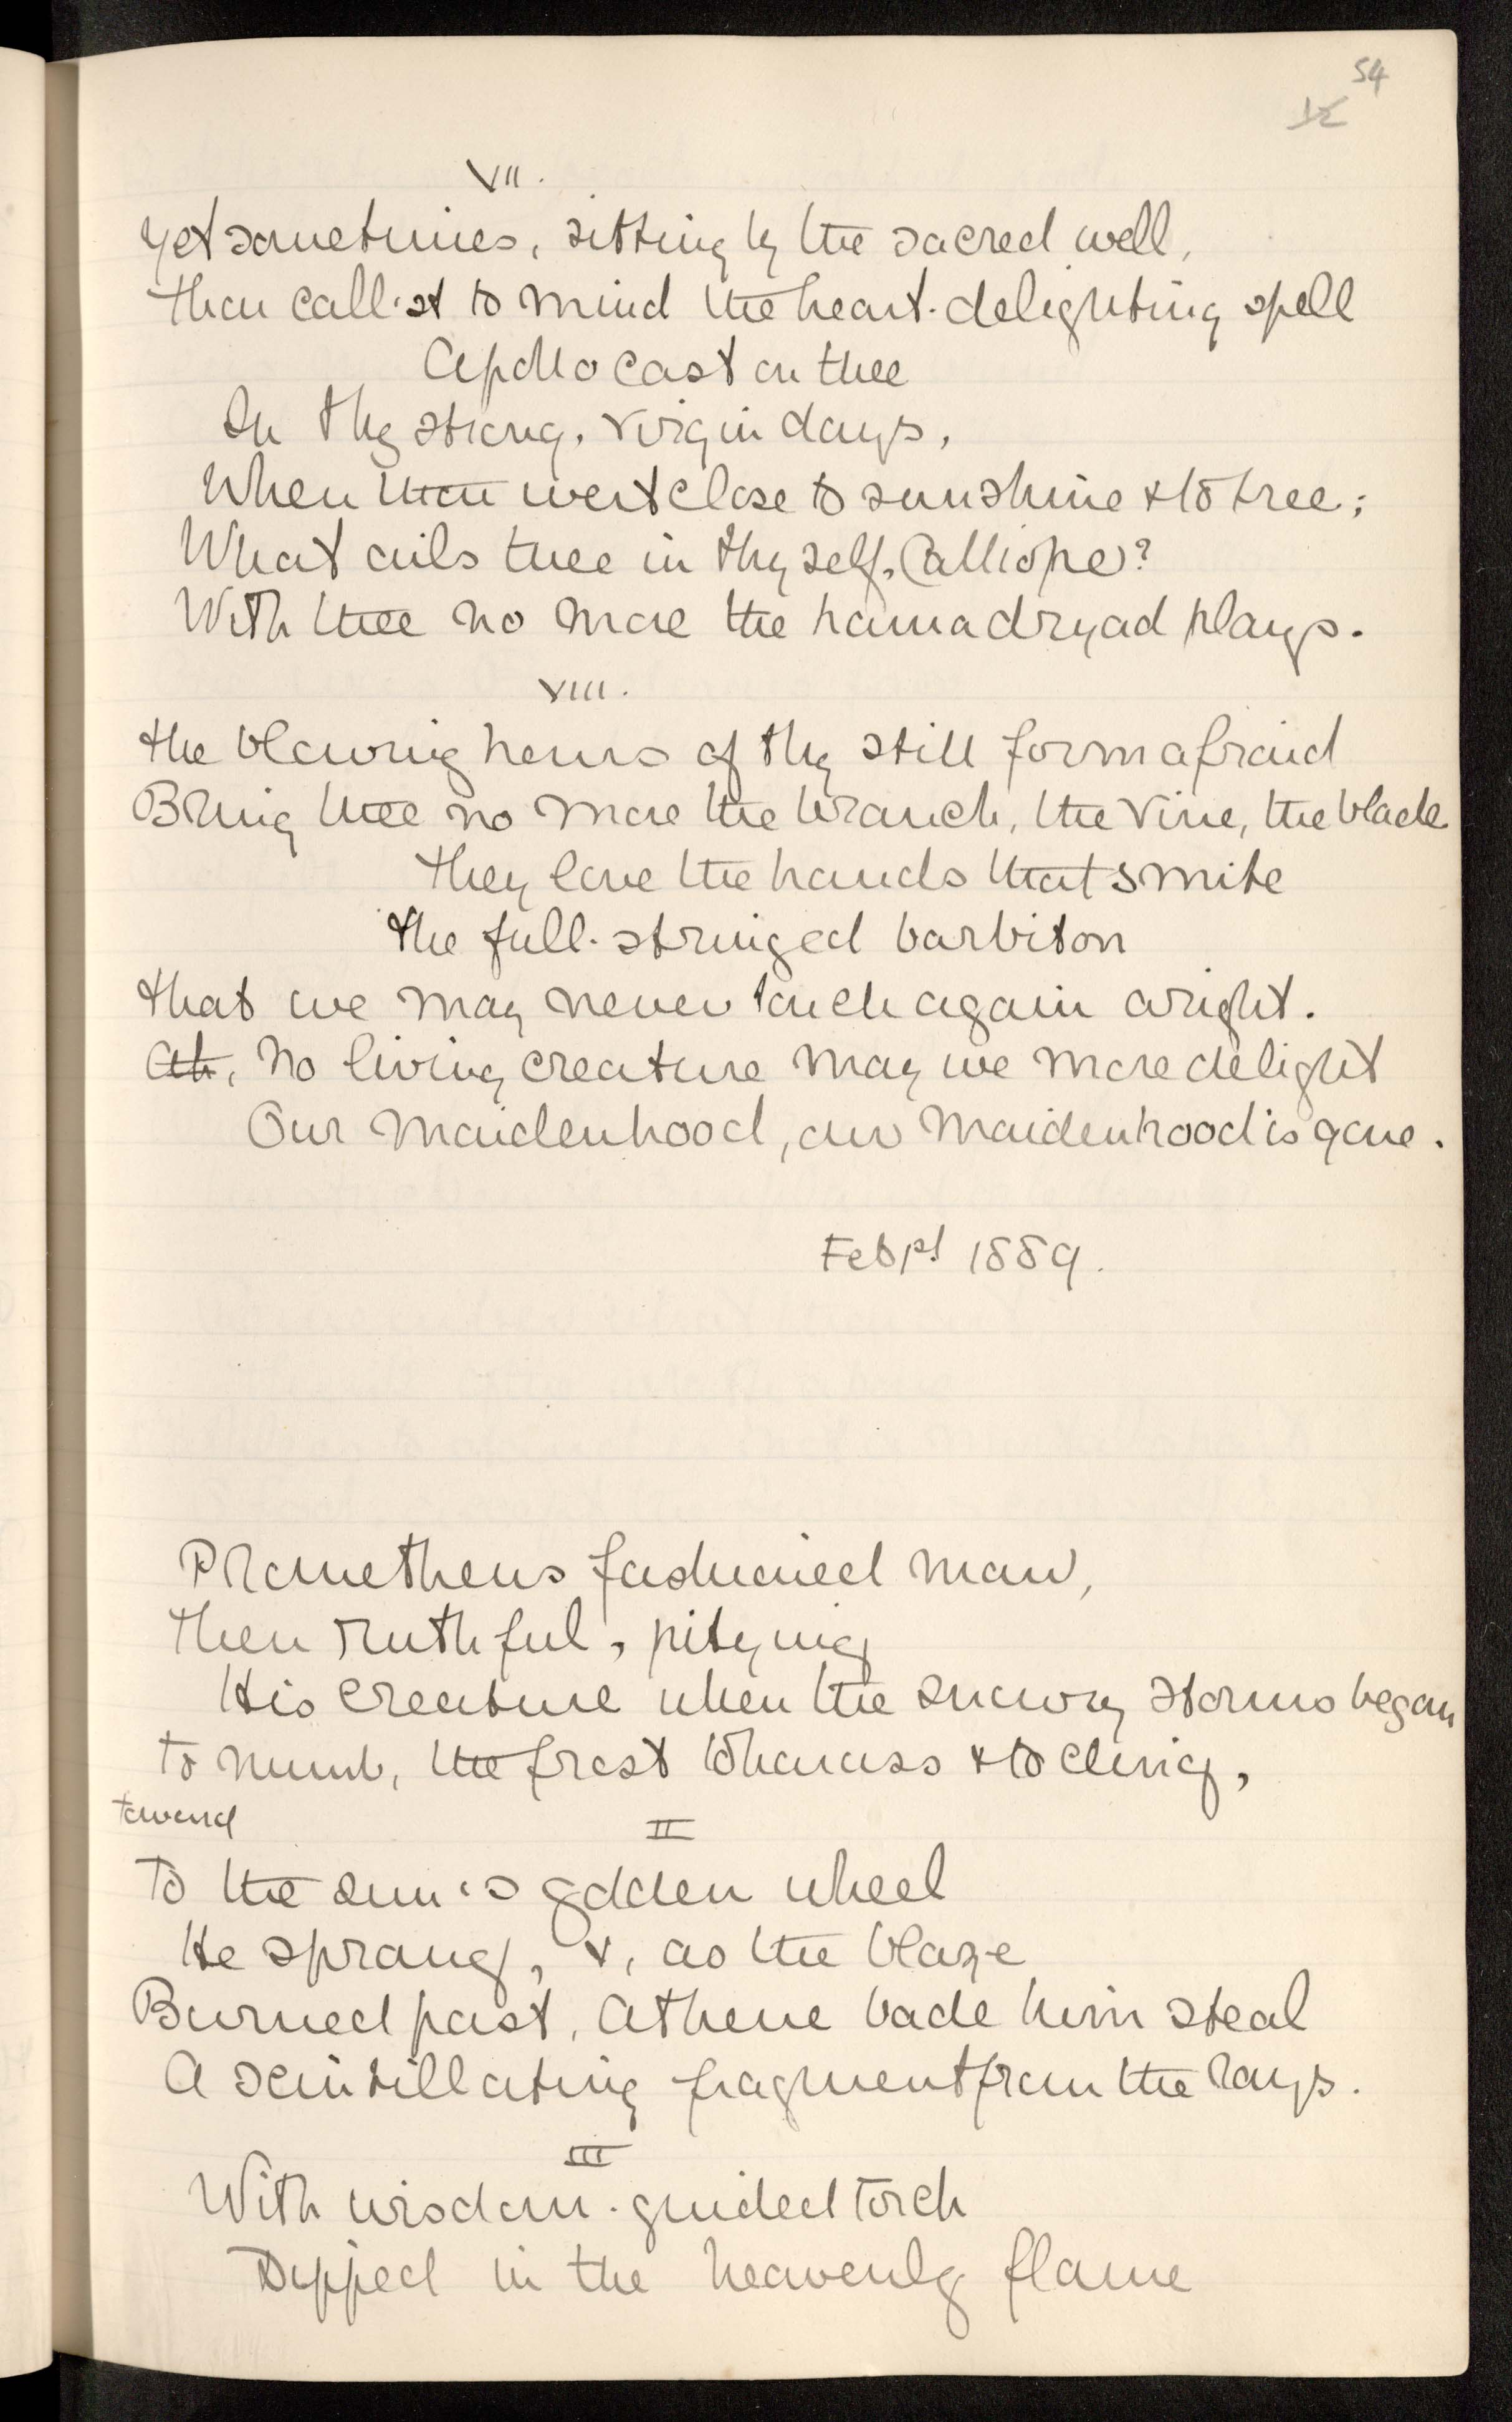 54
12
VII.
Yet sometimes, sitting by the sacred well,
Thou call'st to mind the heart-delighting spell
Apollo cast on thee
In thy strong, virgin days,
When thou wert close to sunshine & to tree;
What ails thee in thyself, Calliope?
With thee no more the hamadryad plays.
VIII.
The blowing hours of thy still form afraid
Bring thee no more the branch, the vine, the blade
They love the hands that smite
The full-stringed barbiton
That we may never touch again aright.
Ah, No living creature may we more delight
Our maidenhood, our maidenhood is gone.
Feb 1st 1889.
Prometheus fashioned man,
Then ruthful, pitying
His creature when the snowy storms began
To numb, the frost to harass & to cling,
toward
II
To the sun's golden wheel
He sprang, &, as the blaze
Burned past, Athene bade him steal
A scintillating fragment from the rays.
III
With wisdom-guided torch
Dipped in the heavenly flame